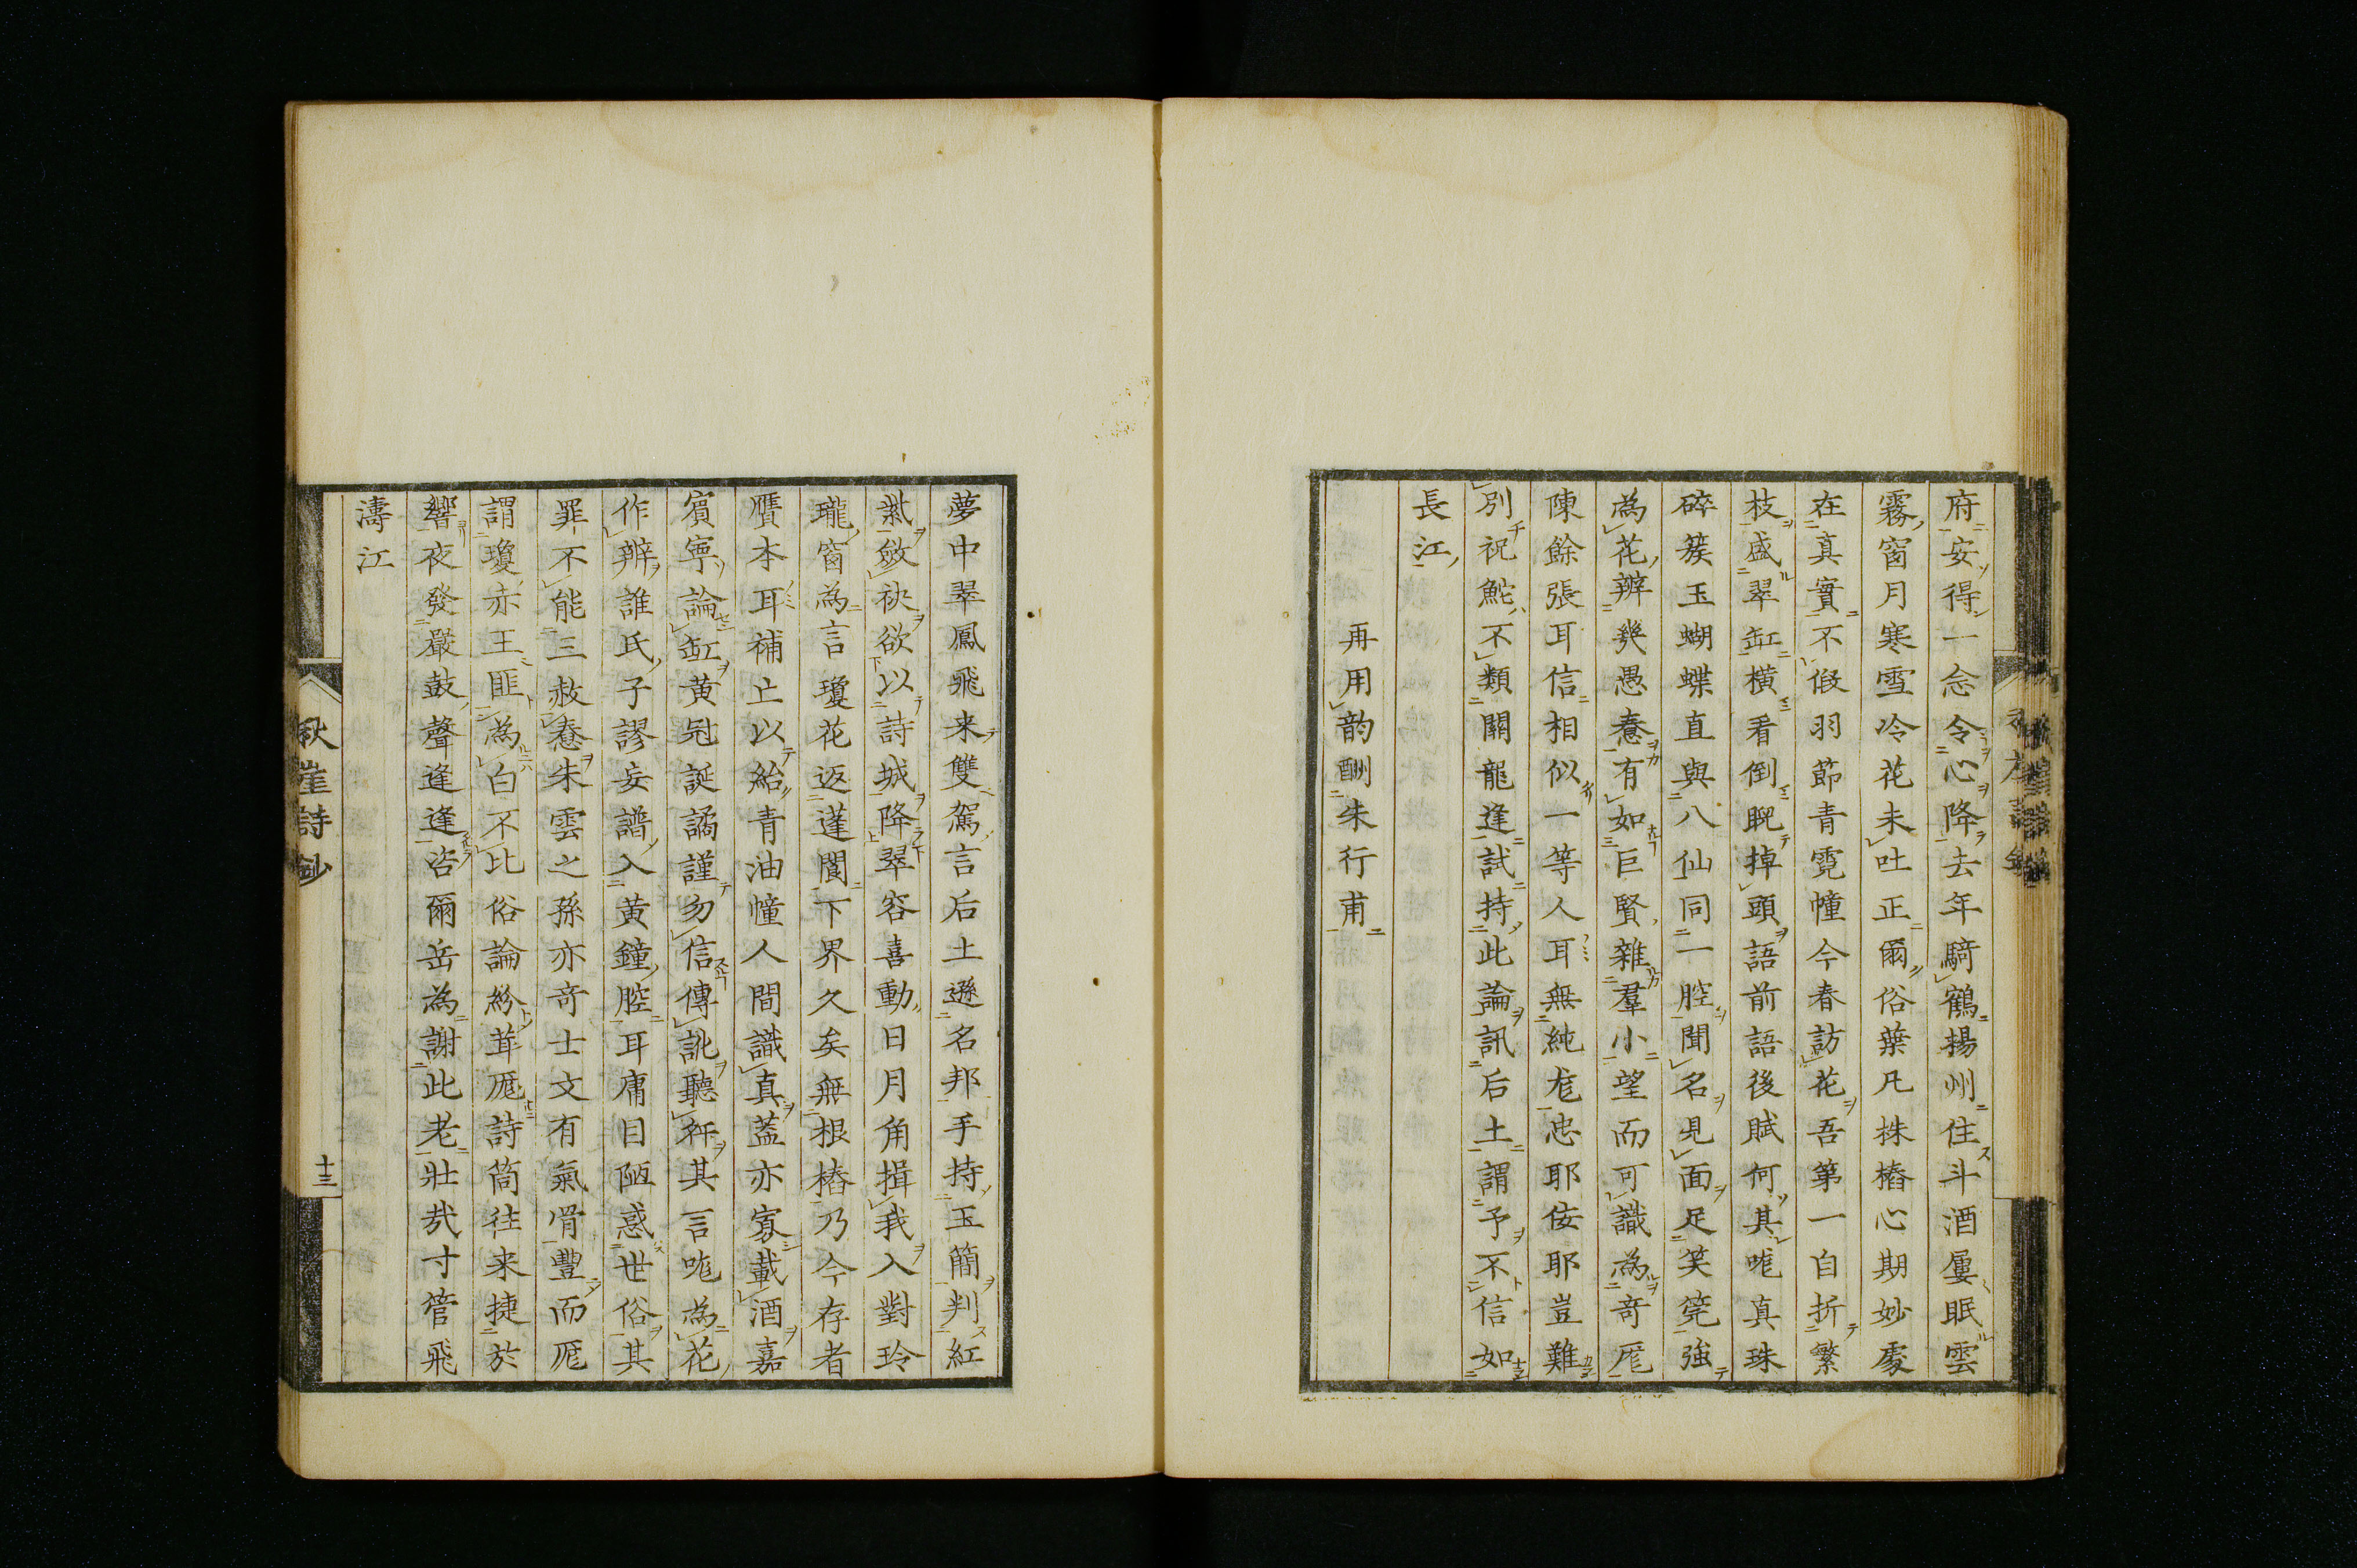 府安得一念令心降去年騎鶴揚州住斗酒屢眠雲
霧窗月寒雪冷花未吐正爾俗葉凡株樁心期妙處
在真實不假羽節青霓幢今春訪花吾第一自折繁
枝盛翠缸橫看倒睨掉頭語前語後賦何其哤真珠
碎蔟玉蝴蝶直與八仙同一腔聞名見面足笑筦強
為花辨幾愚惷有如巨賢雜羣小望而可識為奇厖
陳餘張耳信相似一等人耳無純厖忠耶佞耶豈難
別祝鮀不類關龍逄試持此論訊后土謂予不信如
長江
再用韵酬朱行甫
夢中翠鳳飛来雙駕言后土遜名邦手持玉簡判紅
紫斂袂欲以詩城降翠容喜動日月角揖我入對玲
瓏窗為言瓊花返蓬閬下界久矣無根樁乃今存者
贋本耳補亡以紿青油幢人間識真蓋亦寡載酒嘉
賓寧論缸黄冠誕譎謹勿信傳訛聽秤其言哤為花
作辨誰氏子謬妄譜入黄鐘腔耳庸目陋惑世俗其
罪不能三赦惷朱雲之孫亦奇士文有氣骨豐而厖
謂瓊赤玉匪為白不比俗論紛茸厖詩筒往来捷於
響夜發嚴鼓聲逄逄咨爾岳為謝此老壯㢤寸管飛
濤江
秋崖詩鈔
十三